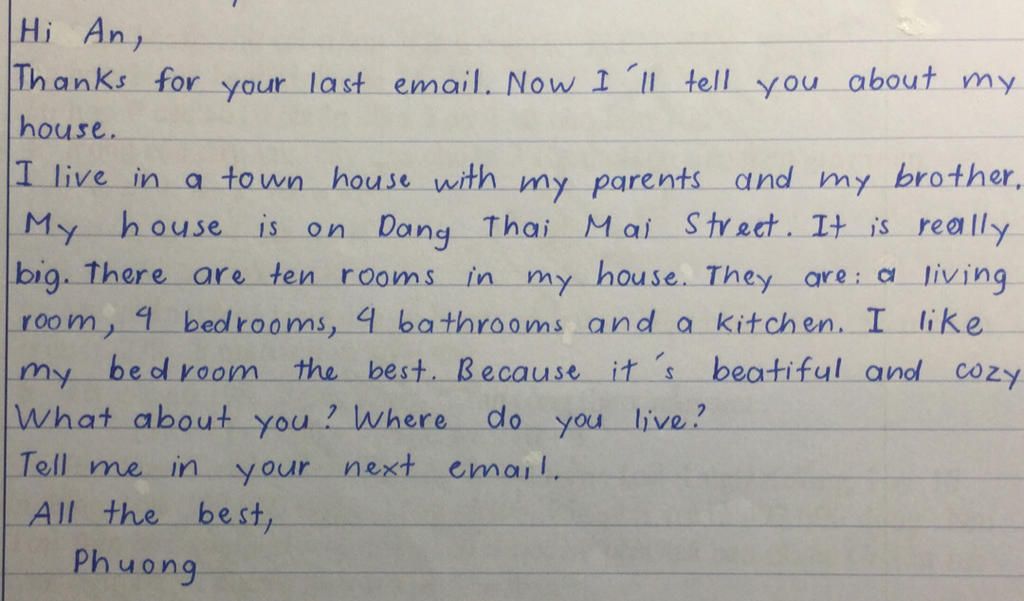 Hi An,
Thanks for your last email. Now I'll tell you about my
house.
I live in a town house with my parents and my brother.
My house is on Dang Thai Mai Street. It is really
big. There are ten rooms in my house. They are: a living
room, 4 bedrooms, 4 bathrooms and a kitchen. I like
my bedroom the best. Because it's beatiful and cozy
What about you? Where do you live?
Tell me in your next email.
All the best,
Phuong